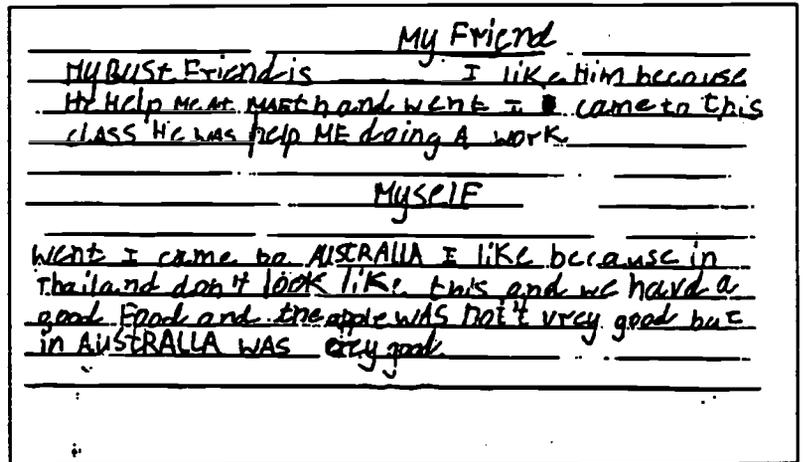 My Friend
My BUSt Friend is I like Him because
He Help Me At MAEth and went I came to this
class He was help ME doing A work
MyselF
went I came to AUSTRALLA I like because in
Thailand don't look like this and we have a
good Food and the apple wAS not't vrey good but
in AUSTRALLA WAS good